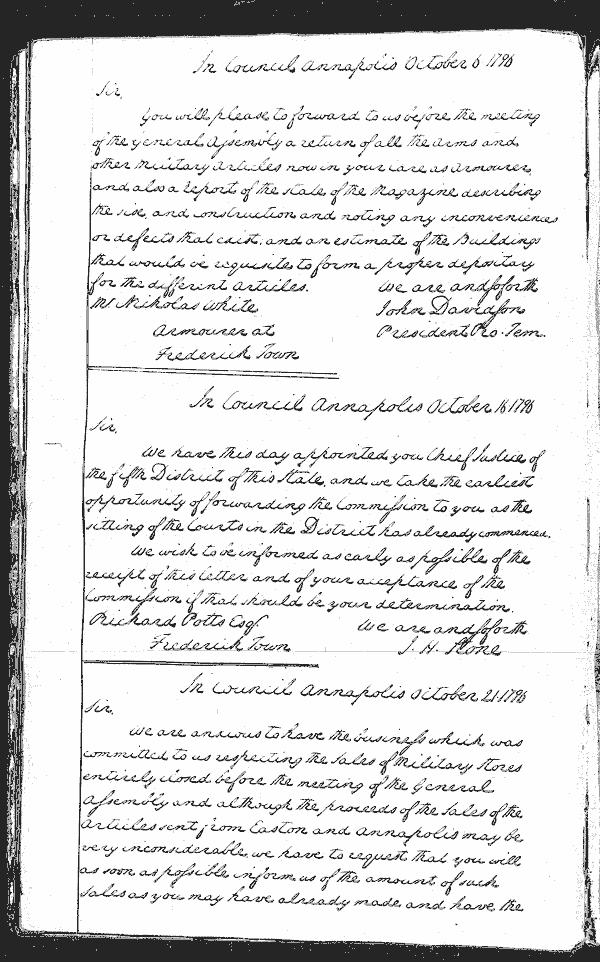 In Council Annapolis October 6 1796
Sir,
You will please to forward to us before the meeting
of the General Assembly a return of all the Arms and
other Military Articles now in your care as Armourer,
and also a report of the state of the Magazine describing
the size, and construction and noting any inconveniences
or defects that exist, and an estimate of the Buildings
that would be requisite to form a proper depositary
for the different Articles. We are and so forth
Mr Nicholas White John Davidson
Armourer at President Pro. Tem.
Frederick Town
In Council Annapolis October 16 1796
Sir,
We have this day appointed you Chief Justice of
the fifth District of this State, and we take the earliest
opportunity of forwarding the Commission to you as the
sitting of the Courts in the District has already commenced.
We wish to be informed as early as possible of the
receipt of this letter and of your acceptance of the
Commission if that should be your determination.
Richard Potts Esqr We are and so forth
Frederick Town J. H. Stone
In Council Annapolis October 21 1796
Sir,
We are anxious to have the business which was
committed to us respecting the Sales of Military Stores
entirely closed before the meeting of the General
Assembly and although the proceeds of the Sales of the
Articles sent from Easton and Annapolis may be
very inconsiderable, we have to request that you will
as soon as possible inform us of the amount of such
Sales as you may have already made and have the